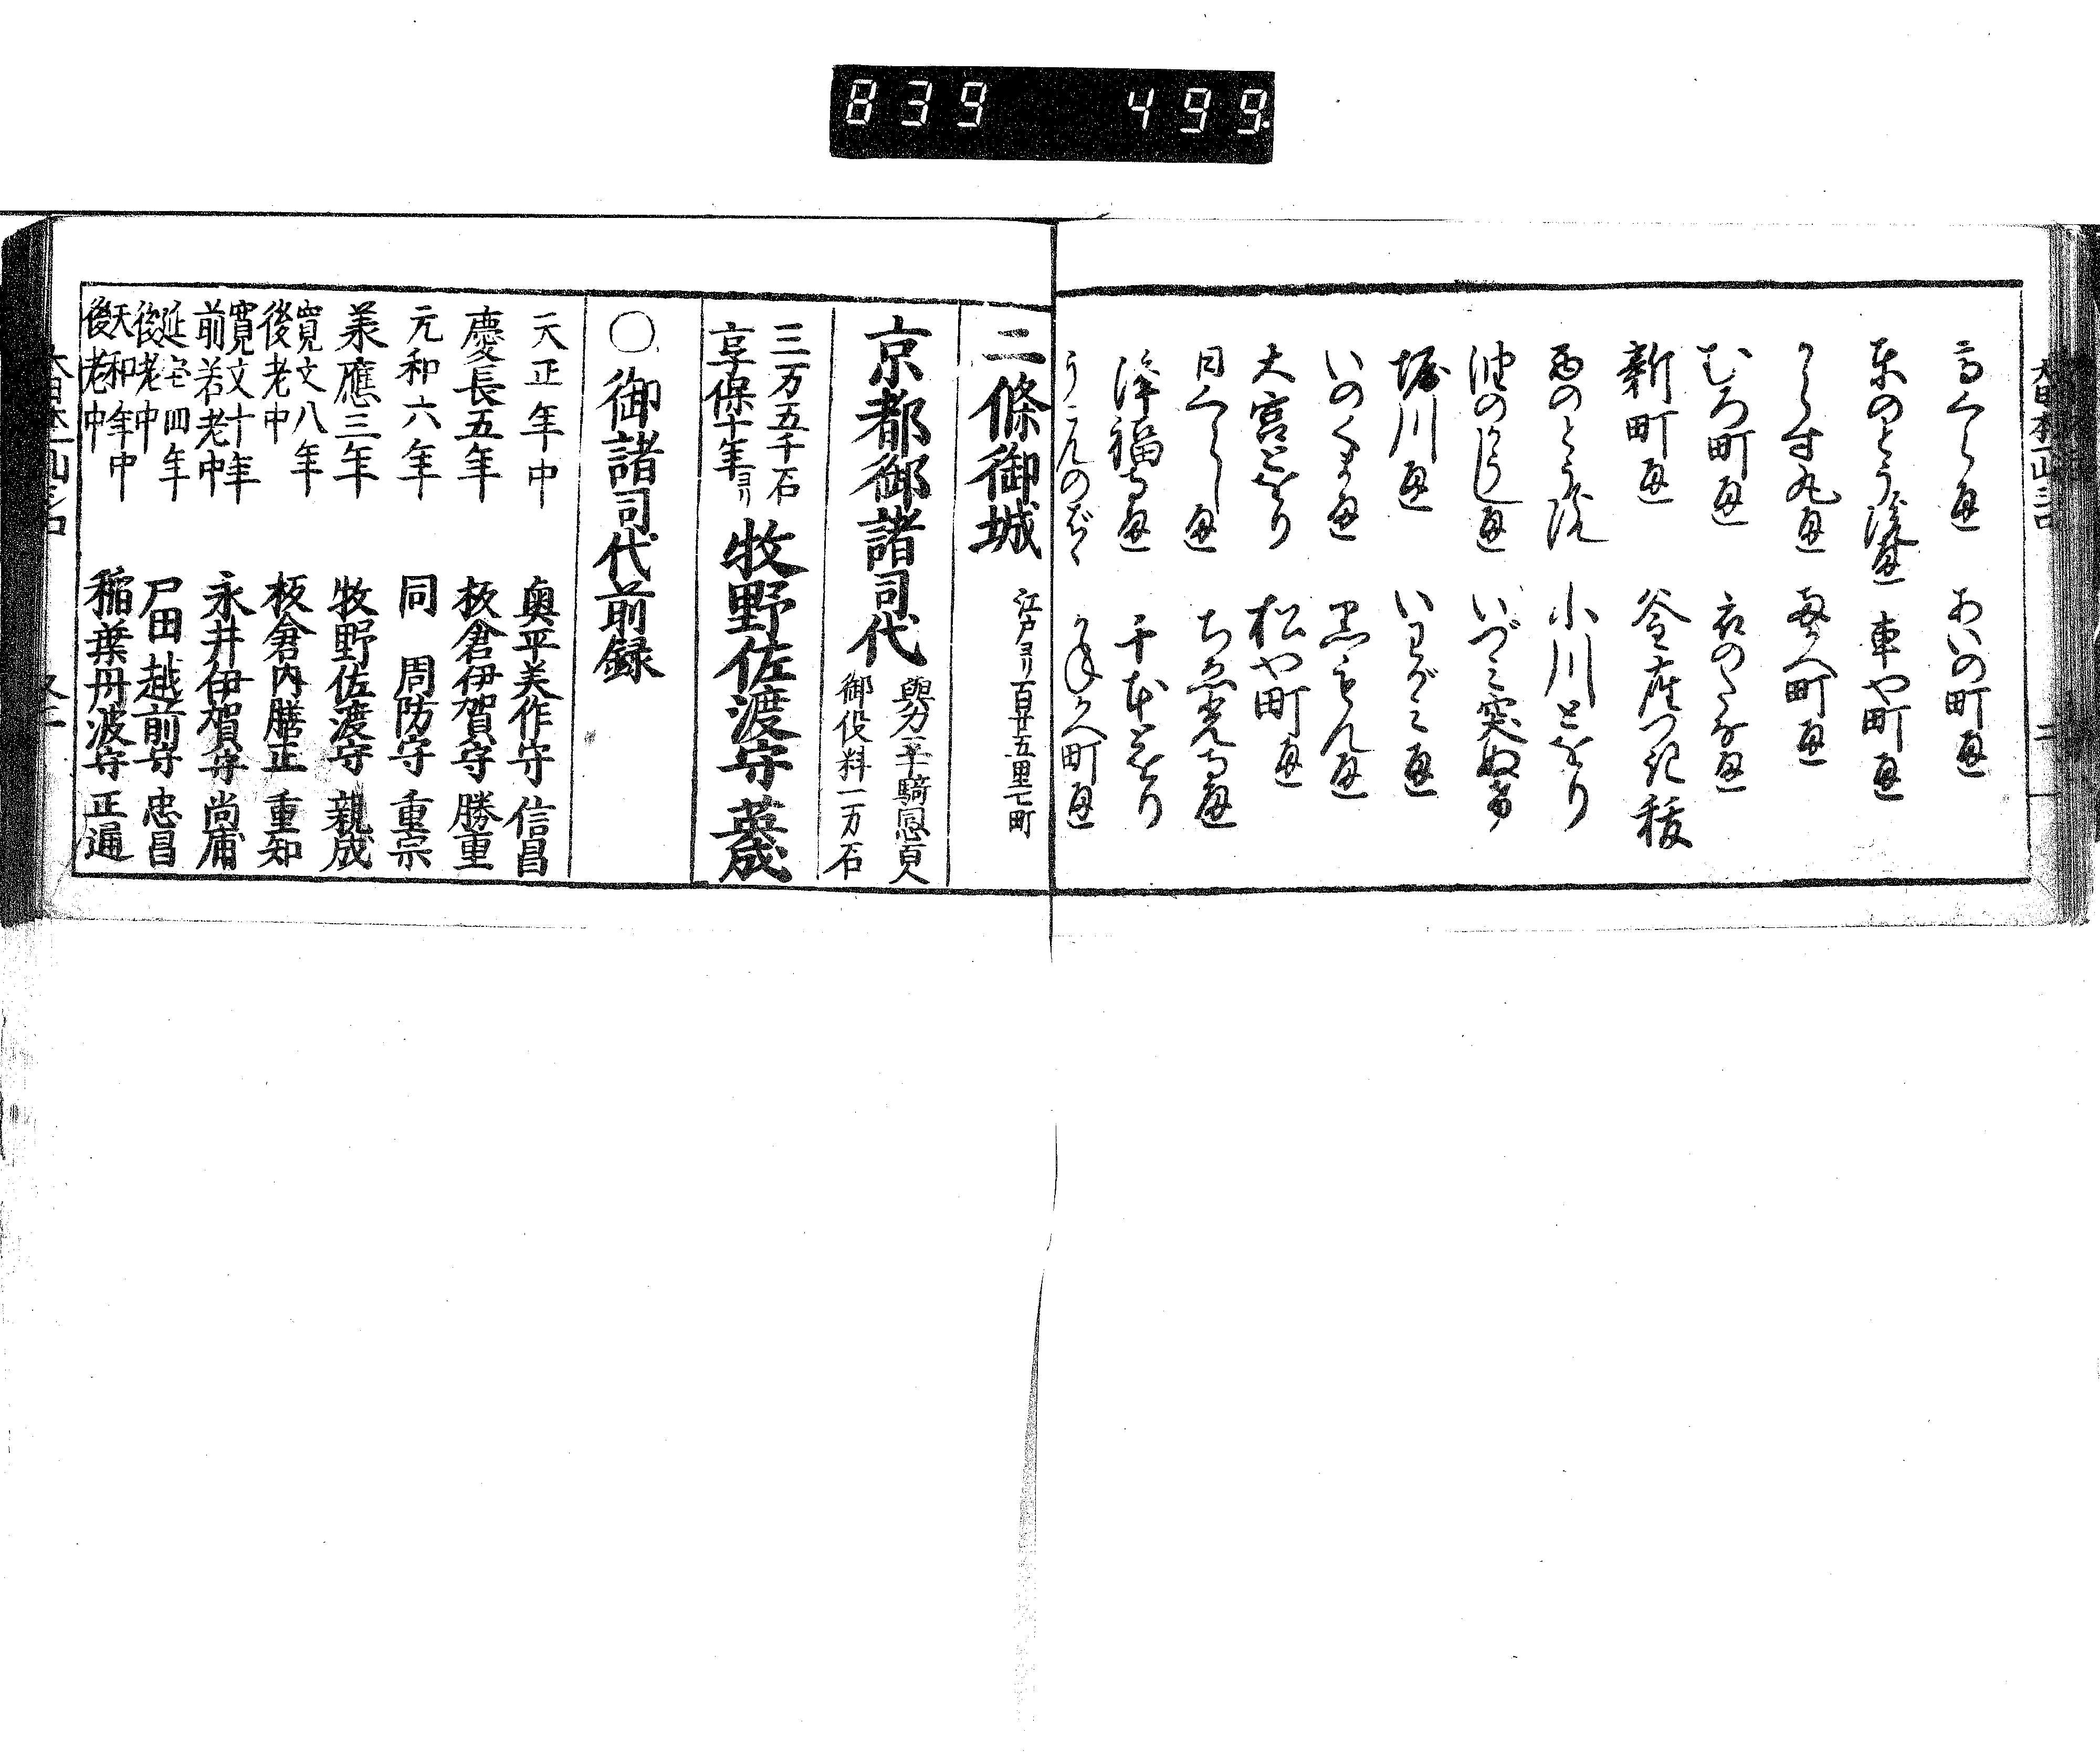 839 499
高くら通 あいの町通
東のとう院通 車や町通
からす丸通 両かへ町通
むろ町通 衣のたな通
新町通 釜座つき抜
西のとう院 小川とをり
油のかうし通 いづミ突ぬけ
堀川通 いわがミ通
いのくま通 黒もん通
大宮とをり 松や町通
日くらし通 ちゑ光ゐん通
浄福寺通 千本とをり
うこんのばゝ
二條御城 江戸ヨリ百廿五里七町
京都御諸司代
與力五十騎同心百人
御役料一万石
三万五千石
享保十年ヨリ
牧野佐渡守英成
〇御諸司代前録
天正年中 奥平美作守 信昌
慶長五年 板倉伊賀守 勝重
元和六年 同 周防守 重宗
羕應三年 牧野佐渡守 親成
寛文八年 後老中 板倉内膳正 重知
寛文十年 前若老中 永井伊賀守 尚庸
延宝四年 後老中 戸田越前守 忠昌
天和年中 後老中 稲葉丹波守 正通